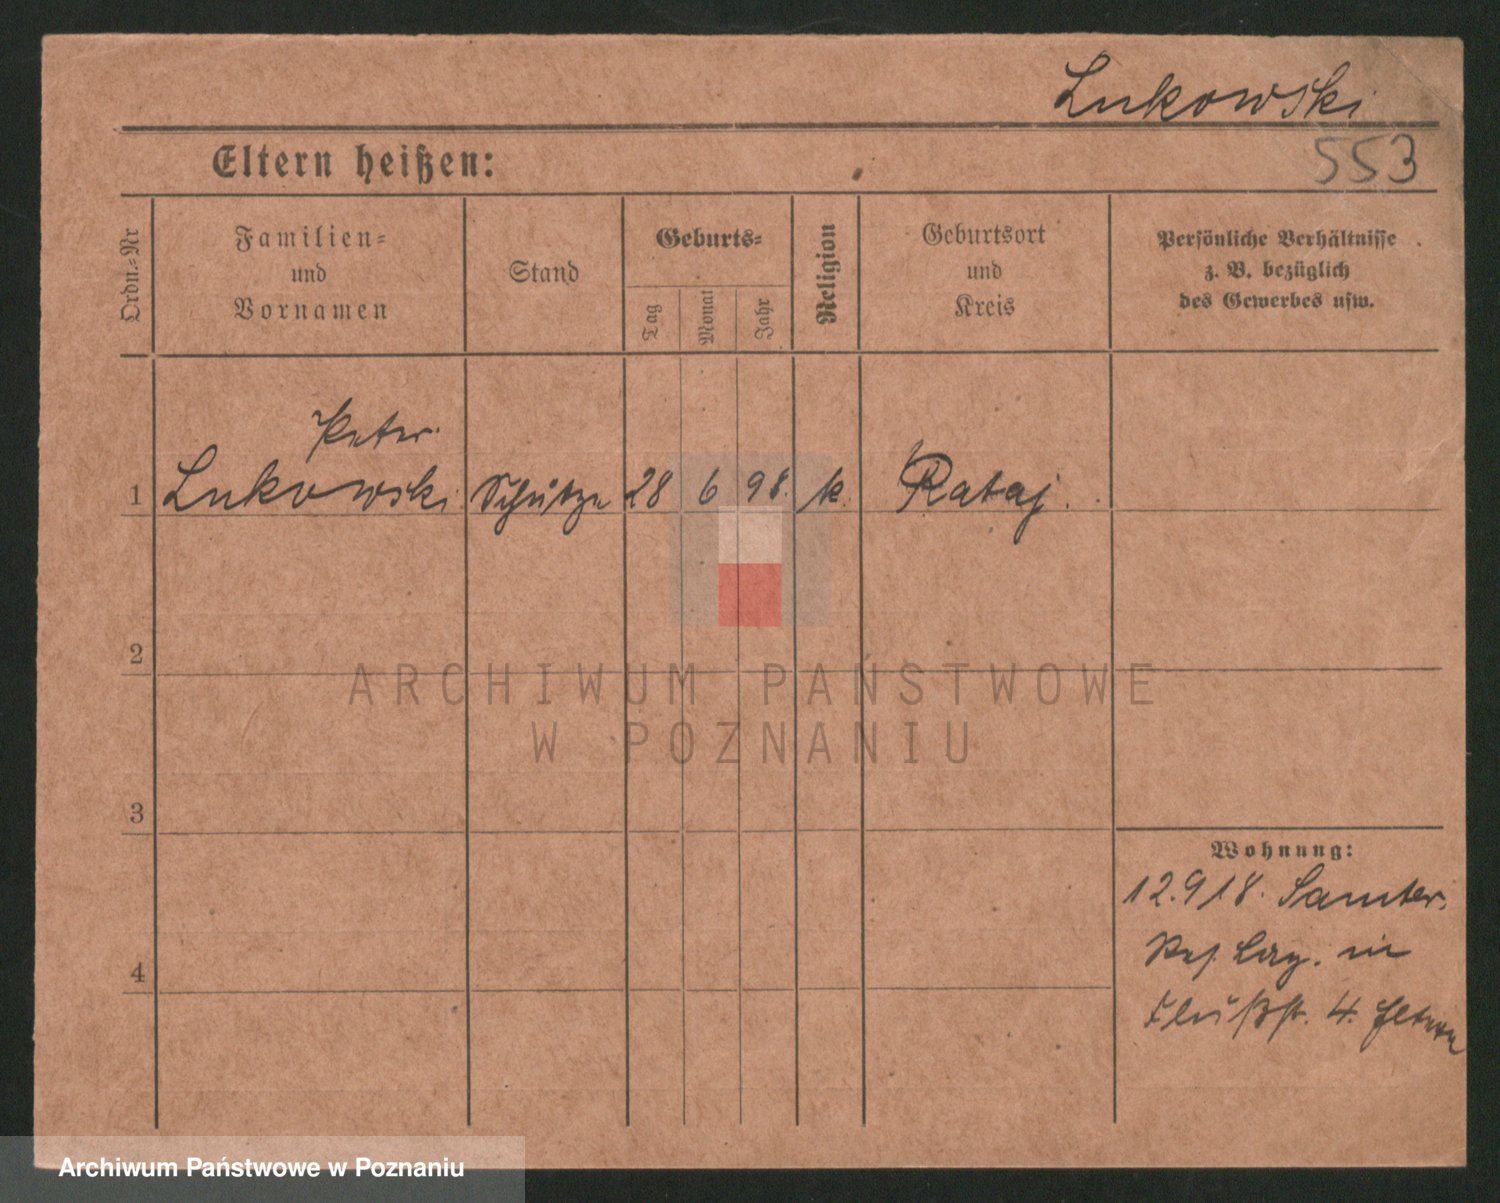 Lukowski
553
Eltern heißen:
Ordn.=Nr
Familien=
und
Vornamen
Stand
Geburts=
Tag
Monat
Jahr
Religion
Geburtsort
und
Kreis
Persönliche Verhältnisse
z. B. bezüglich
des Gewerbes usw.
Peter
1 Lukowski Schütze 28 6 98. k. Rataj.
2
3
4
Wohnung:
12.9 18. Samter.
Res. Laz. in
Flußst. 4. Eltern
ARCHIWUM PAŃSTWOWE
W POZNANIU
Archiwum Państwowe w Poznaniu